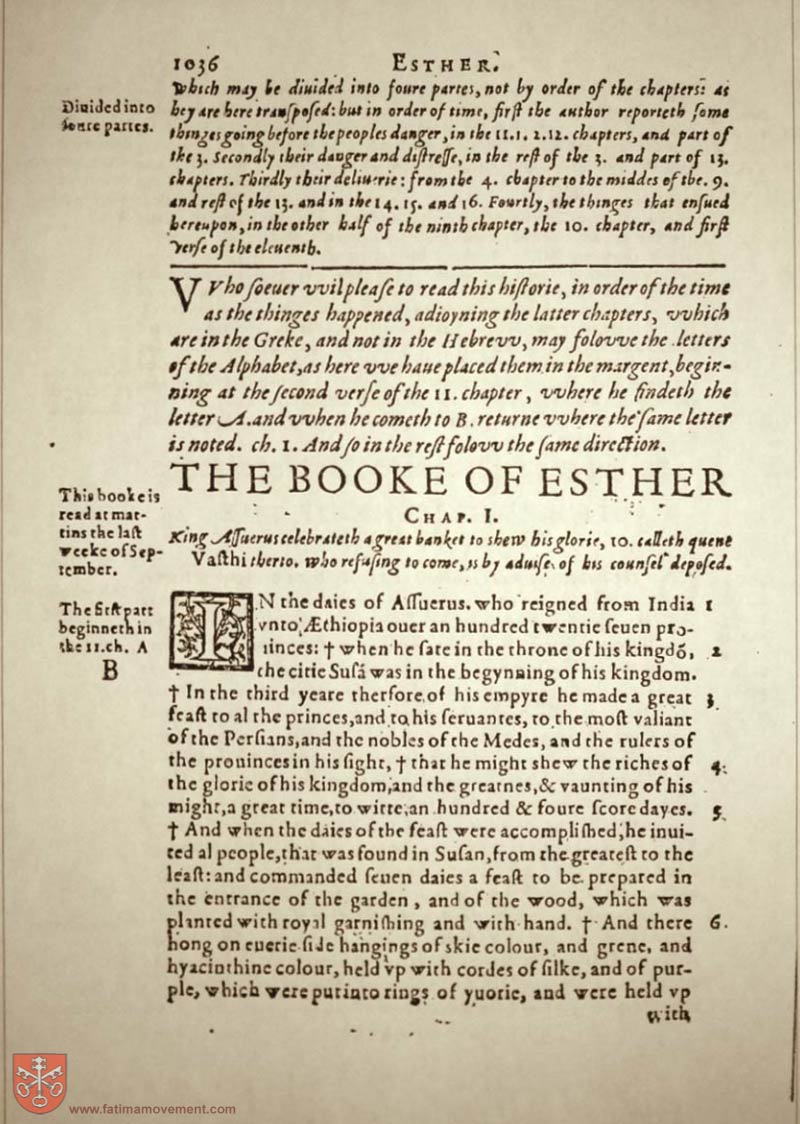 1036 ESTHER.
Which may be diuided into foure partes, not by order of the chapters: as
hey are here transposed: but in order of time, first the author reporteth some
thinges going before the peoples danger, in the 11. 1. 2. 12. chapters, and part of
the 3. Secondly their danger and distresse, in the rest of the 3. and part of 13.
chapters. Thirdly their deliuerie: from the 4. chapter to the middes of the. 9.
and rest of the 13. and in the 14. 15. and 16. Fourtly, the thinges that ensued
hereupon, in the other half of the ninth chapter, the 10. chapter, and first
verse of the eleuenth.
Diuided into
foure partes.
VVho soeuer vvil please to read this historie, in order of the time
as the thinges happened, adioyning the latter chapters, vvhich
are in the Greke, and not in the Hebrevv, may folovve the letters
of the Alphabet, as here vve haue placed them in the margent, begin-
ning at the second verse of the 11. chapter, vvhere he findeth the
letter A. and vvhen he cometh to B. returne vvhere the same letter
is noted. ch. 1. And so in the rest folovv the same direction.
THE BOOKE OF ESTHER
CHAP. I.
King Assuerus celebrateth a great banket to shew his glorie, 10. calleth quene
Vasthi therto. who refusing to come, is by aduise of his counsel deposed.
This booke is
read at mat-
tins the last
weeke of Sep-
tember.
The first part
beginneth in
the 11. ch. A
B
IN the daies of Assuerus. who reigned from India 1
vnto Æthiopia ouer an hundred twentie seuen pro-
uinces: † when he sate in the throne of his kingdō, 2
the citie Susā was in the begynning of his kingdom.
† In the third yeare therfore of his empyre he made a great 3
feast to al the princes, and to his seruantes, to the most valiant
of the Persians, and the nobles of the Medes, and the rulers of
the prouinces in his sight, † that he might shew the riches of 4
the glorie of his kingdom, and the greatnes, & vaunting of his
might, a great time, to witte, an hundred & foure score dayes. 5
† And when the daies of the feast were accomplished, he inui-
ted al people, that was found in Susan, from the greatest to the
least: and commanded seuen daies a feast to be prepared in
the entrance of the garden, and of the wood, which was
planted with royal garnishing and with hand. † And there 6.
hong on euerie side hangings of skie colour, and grene, and
hyacinthine colour, held vp with cordes of silke, and of pur-
ple, which were put into rings of yuorie, and were held vp
with
www.fatimamovement.com